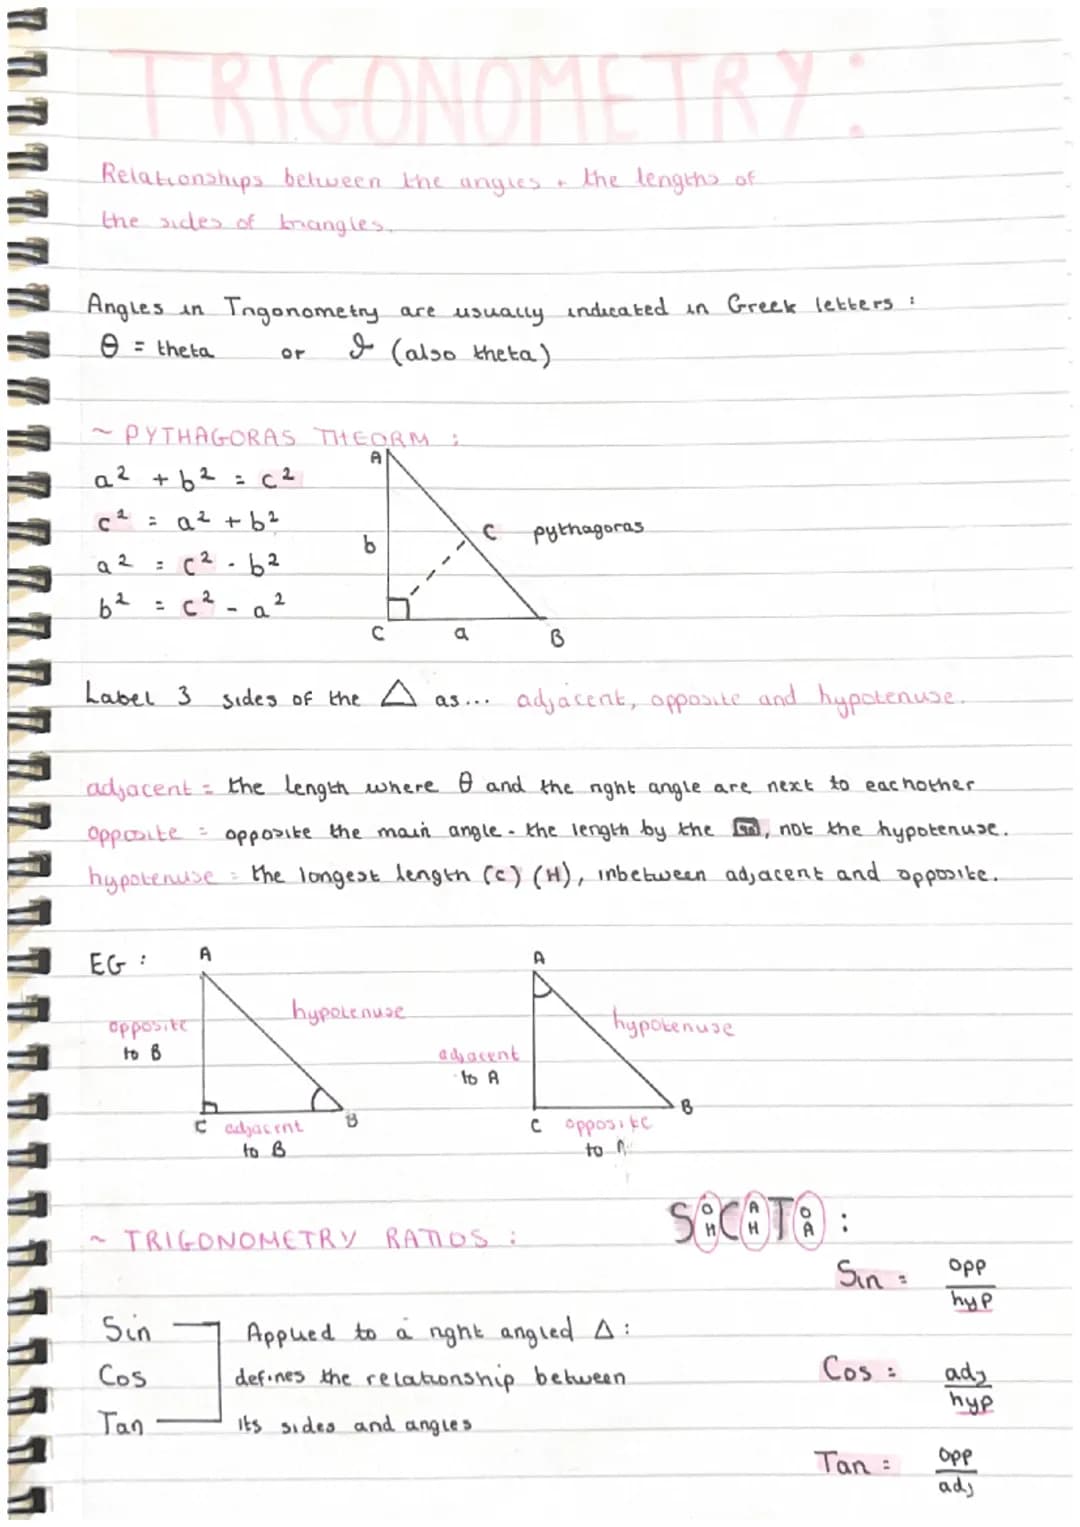 TRIGONOMETRY:
Relationships between the angles + the lengths of
the sides of triangles.
Angles in Trigonometry are usually indicated in Greek letters :
θ = theta or ϑ (also theta)
~ PYTHAGORAS THEORM :
a² + b² = c²
c² = a² + b²
a² = c² - b²
b² = c² - a²
A
b
c pythagoras
C a B
Label 3 sides of the △ as... adjacent, opposite and hypotenuse.
adjacent = the length where θ and the right angle are next to eachother
opposite = opposite the main angle - the length by the , not the hypotenuse.
hypotenuse = the longest length (c) (H), inbetween adjacent and opposite.
EG :
A
opposite
to B
hypotenuse
C adjacent B
to B
A
adjacent
to A
hypotenuse
C opposite B
to A
~ TRIGONOMETRY RATIOS :
S O/H C A/H T O/A :
Sin
Cos
Tan
Applied to a right angled △ :
defines the relationship between
its sides and angles
Sin = opp/hyp
Cos = adj/hyp
Tan = opp/adj